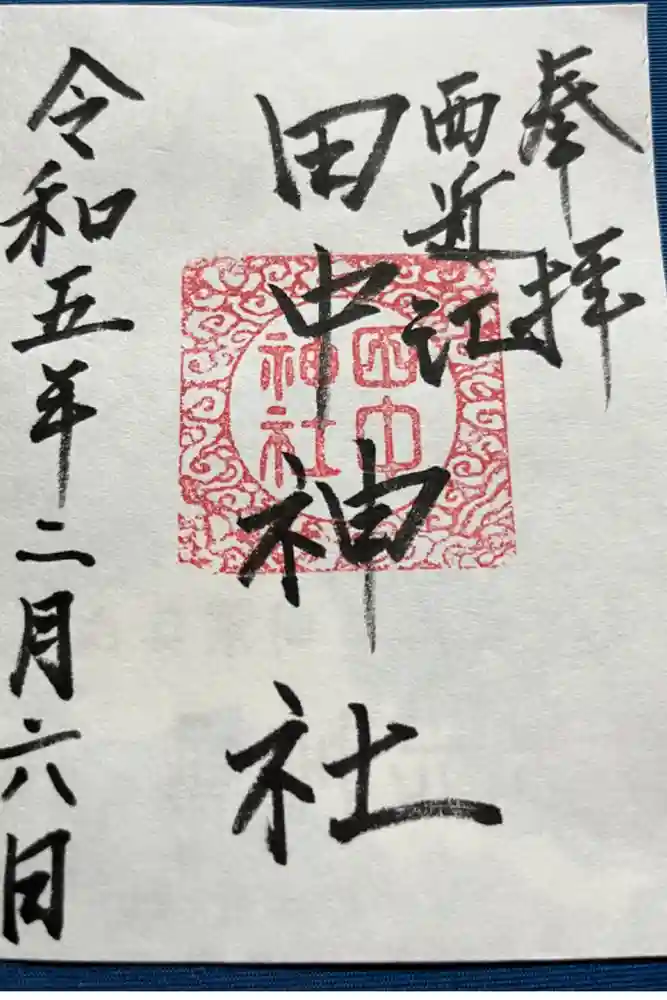 奉拝
西近江
田中神社
田中
神社
令和五年二月六日